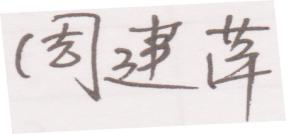 周建萍